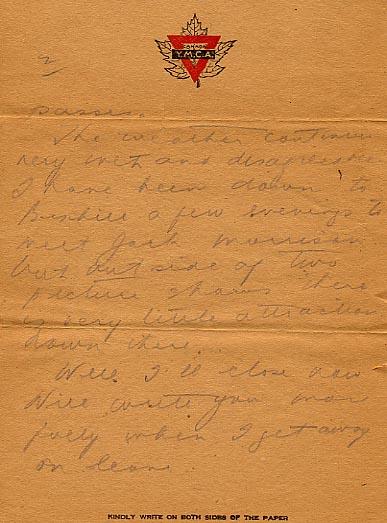 CANADIAN
Y.M.C.A.
2
passes.
The weather continues
very wet and disagreeable
I have been down to
a few evenings to
meet Jack Morrison
but outside of two
picture shows there
is very little attraction
down there...
Well I'll close now
Will write you more
fully when I get away
on leave.
KINDLY WRITE ON BOTH SIDES OF THE PAPER